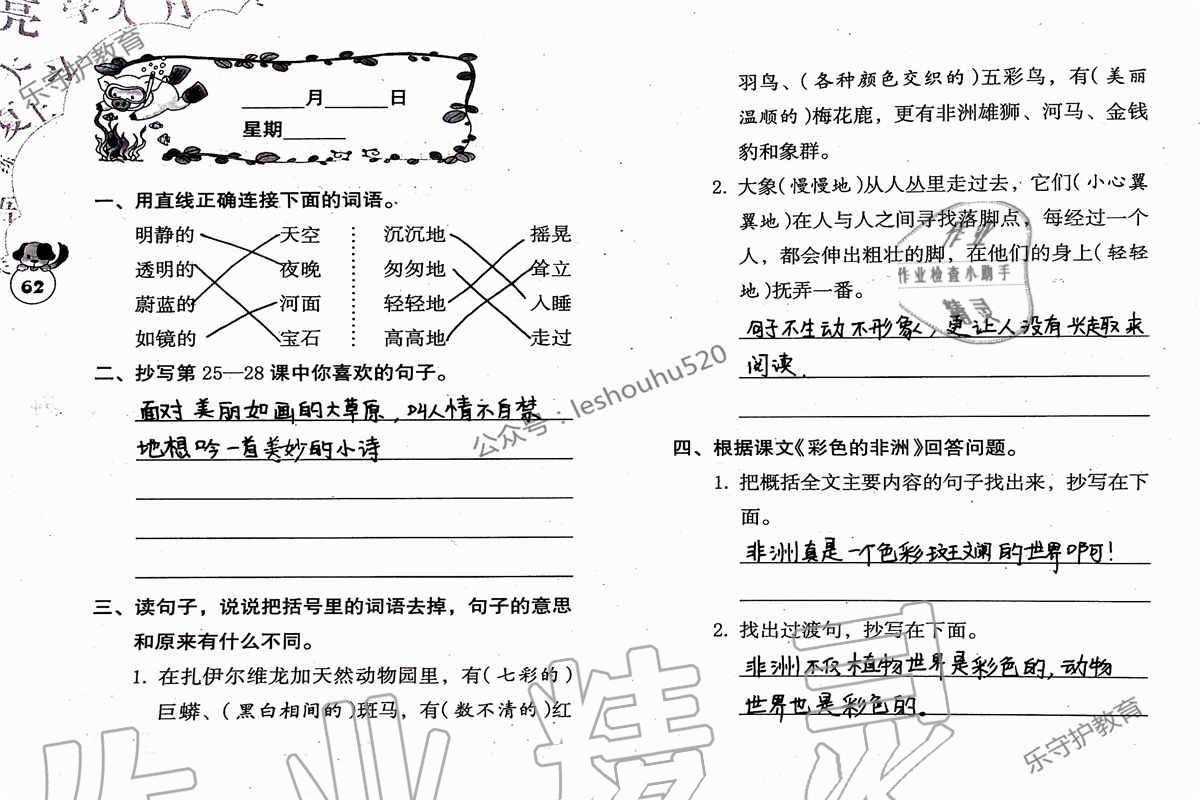 月 日
星期
62
一、用直线正确连接下面的词语。
明静的 天空 沉沉地 摇晃
透明的 夜晚 匆匆地 耸立
蔚蓝的 河面 轻轻地 入睡
如镜的 宝石 高高地 走过
二、抄写第 25—28 课中你喜欢的句子。
面对美丽如画的大草原,叫人情不自禁
地想吟一首美妙的小诗
三、读句子，说说把括号里的词语去掉，句子的意思
和原来有什么不同。
1. 在扎伊尔维龙加天然动物园里，有(七彩的)
巨蟒、(黑白相间的)斑马，有(数不清的)红
羽鸟、(各种颜色交织的)五彩鸟，有(美丽
温顺的)梅花鹿，更有非洲雄狮、河马、金钱
豹和象群。
2. 大象(慢慢地)从人丛里走过去，它们(小心翼
翼地)在人与人之间寻找落脚点，每经过一个
人，都会伸出粗壮的脚，在他们的身上(轻轻
地)抚弄一番。
句子不生动不形象,更让人没有兴趣来
阅读.
四、根据课文《彩色的非洲》回答问题。
1. 把概括全文主要内容的句子找出来，抄写在下
面。
非洲真是一个色彩斑斓的世界啊!
2. 找出过渡句，抄写在下面。
非洲不仅植物世界是彩色的,动物
世界也是彩色的.
乐守护教育
公众号：leshouhu520
作业
作业检查小助手
精灵
作业精灵
乐守护教育